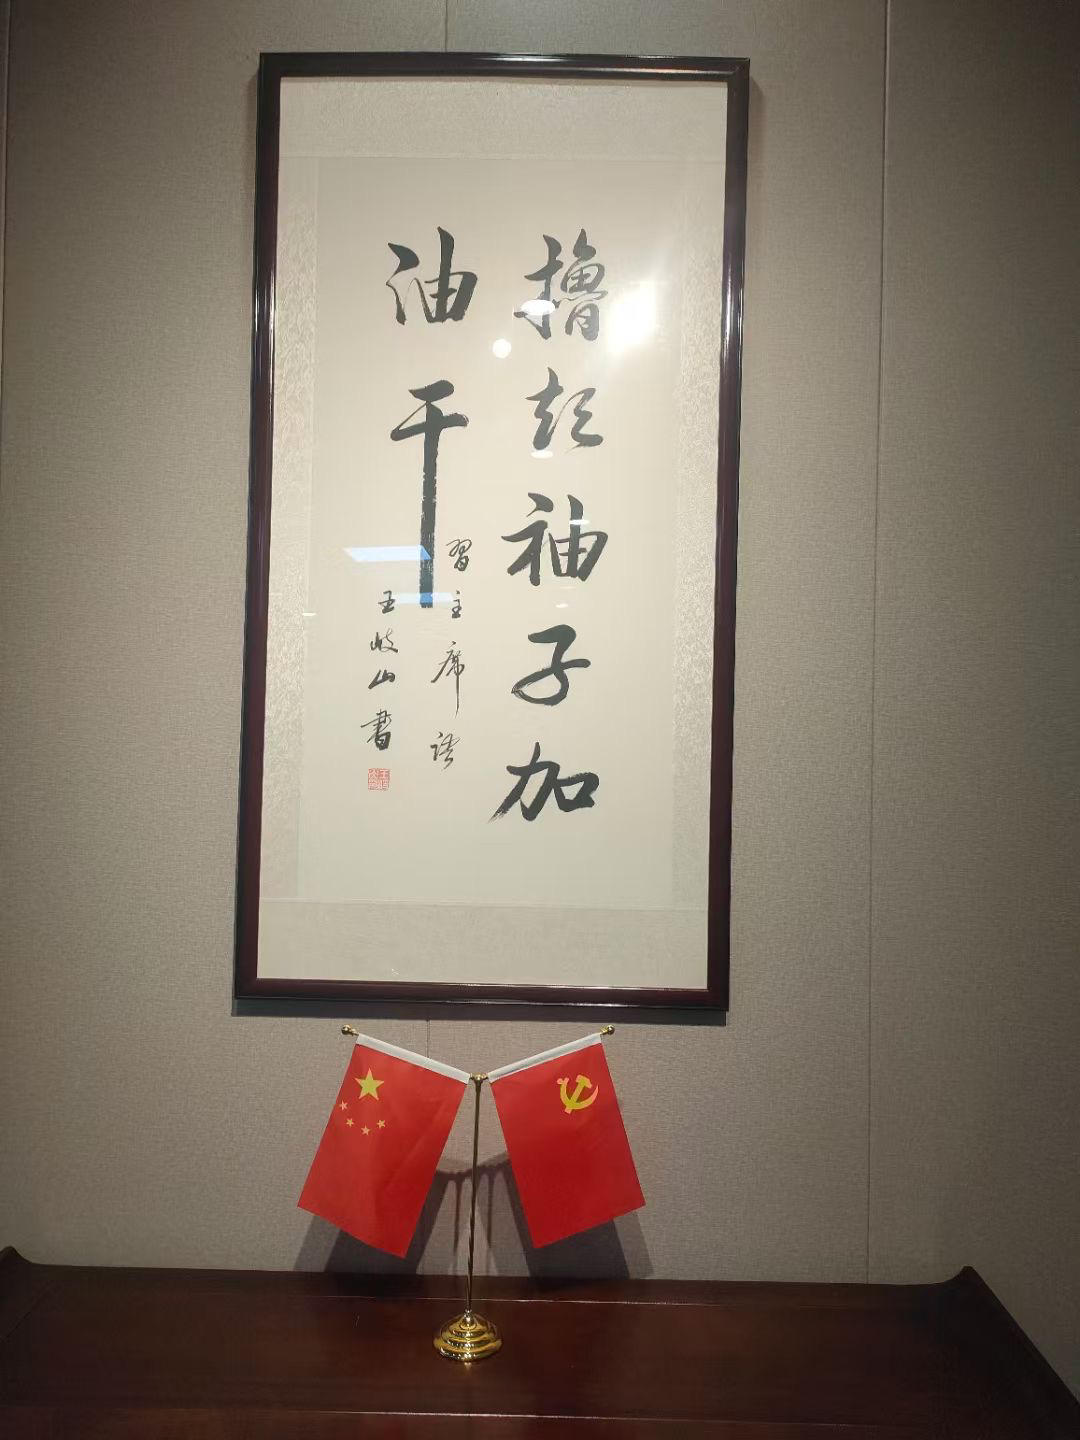 撸起袖子加
油干
習主席語
王岐山書